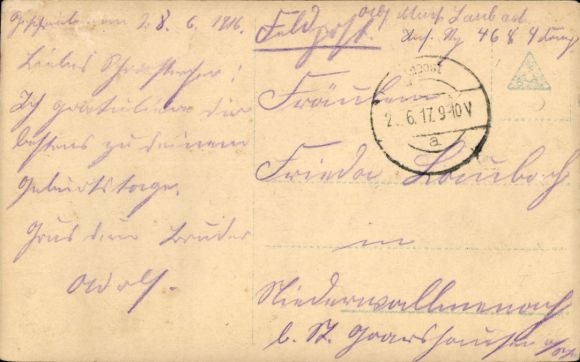 Geschrieben 28. 6. 1916.
Liebes Schwesterchen!
Ich gratuliere dir
bestens zu deinem
Geburtstage.
Grus dein Bruder
Adolf.
Feldpost. Abs. Musk. Laubach
Inf. Rg 468 4 Komp
2.6.17. 9-10 V
a
Fräulein
Frieda Laubach
in
Niederwallmenach
b. St. Goarshausen a/Rh